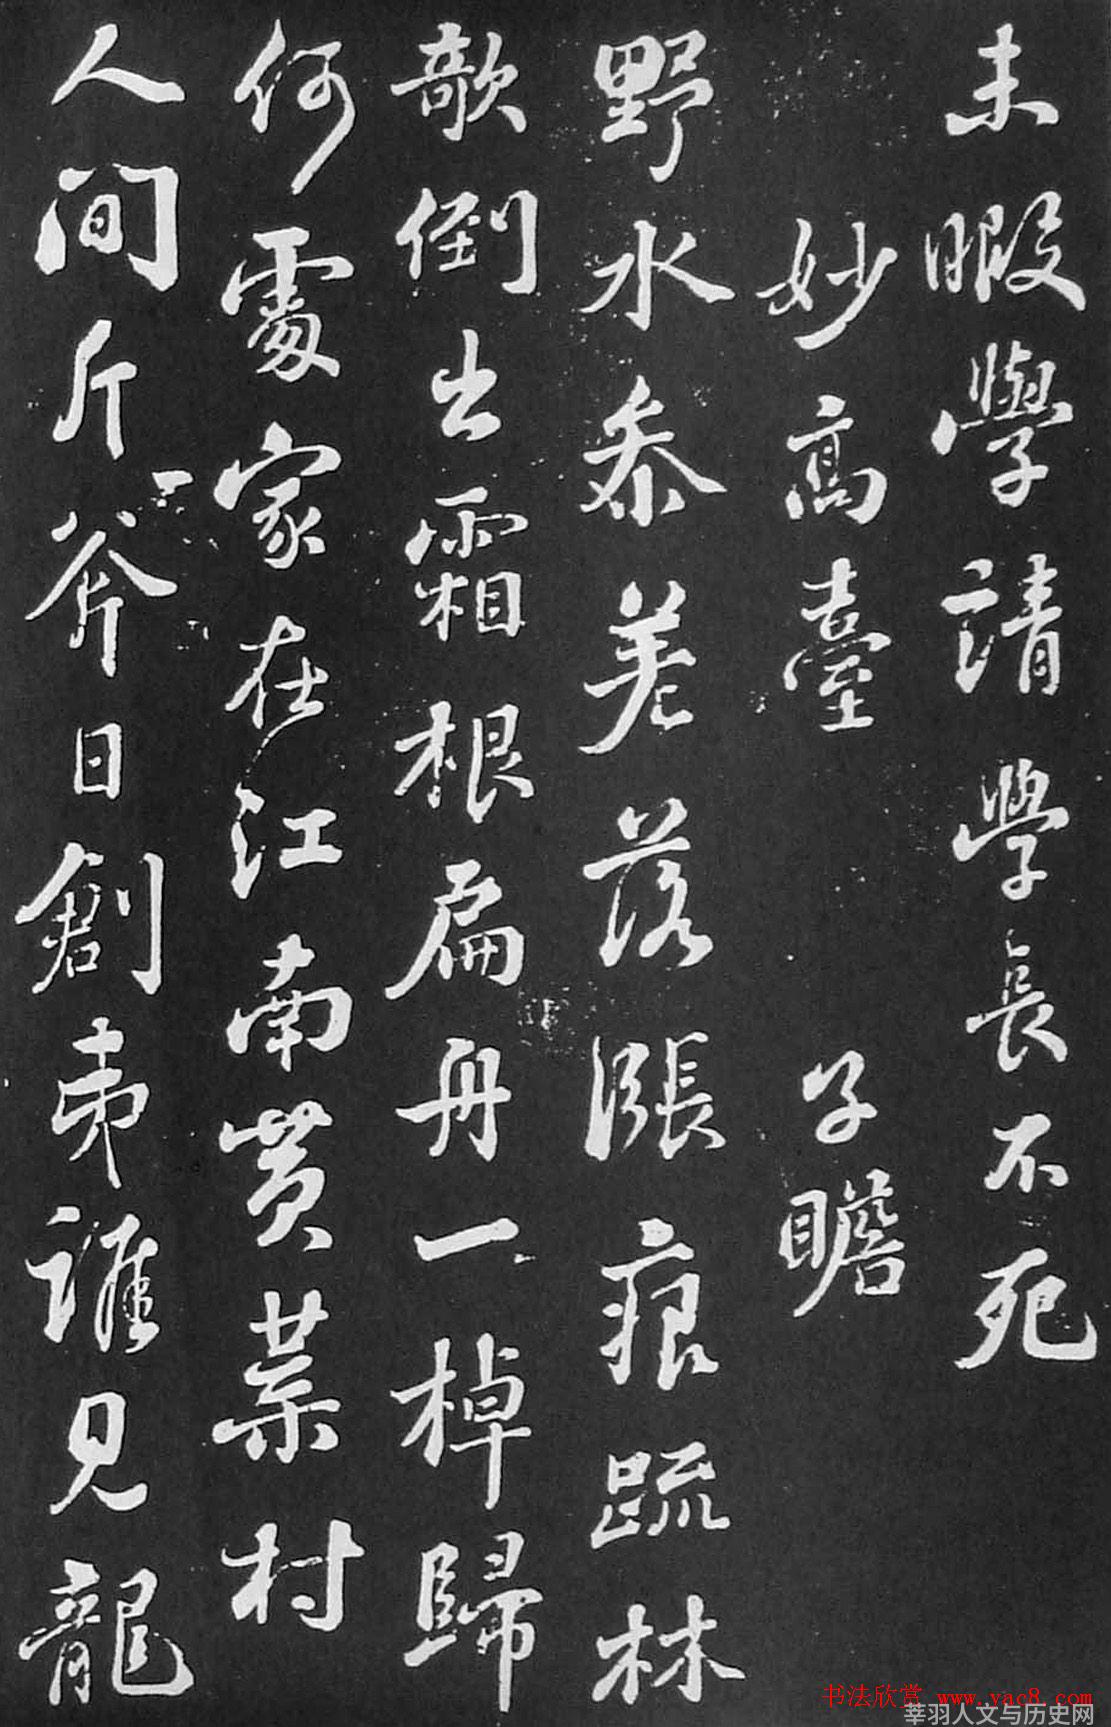 未暇學請學長不死
妙高臺 子瞻
野水叅差落漲痕踈林
歆倒出霜根扁舟一棹歸
何處家在江南黄葉村
人間斤斧日創夷誰見龍
书法欣赏 www.yac8.com
莘羽人文与历史网